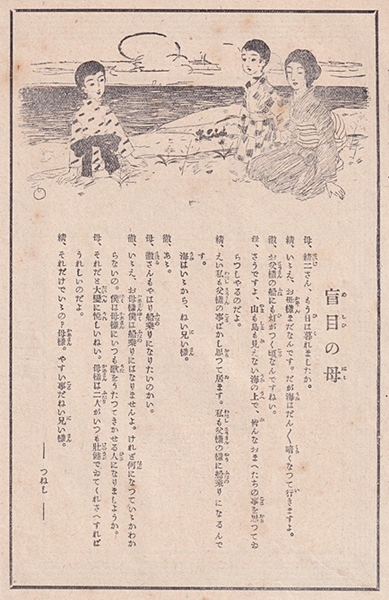 盲目の母
母、績二さん、もう日は暮れましたか。
績、いゝえ、お母様まだなんです。だが海はだん〳〵暗くなつて行きますよ。
徹、お父様の船にも灯がつく頃なんですねい。
母、さうですよ、山も島も見えない海の上で、皆んなおまへたちの事を思つてゐ
らつしやるのだよ。
績、えい私も父様の事ばかし思つて居ます。私も父様の様に船乗りになるんで
す。
海はいゝから、ねい兄い様。
徹、あゝ。
母、徹さんもやはり船乗りになりたいのかい。
徹、いゝえ、お母様僕は船乗りにはなりませんよ。けれど何になつていゝかわか
らないの。僕は母様にいつも歌をうたつてきかせる人になりましようか。
母、それだと大變に悦しいねい。母様は二人がいつも壯健でゐてくれさへすれば
うれしいのだよ。
績、それだけでいゝの？母様。やすい事だねい兄い様。
――つねし――